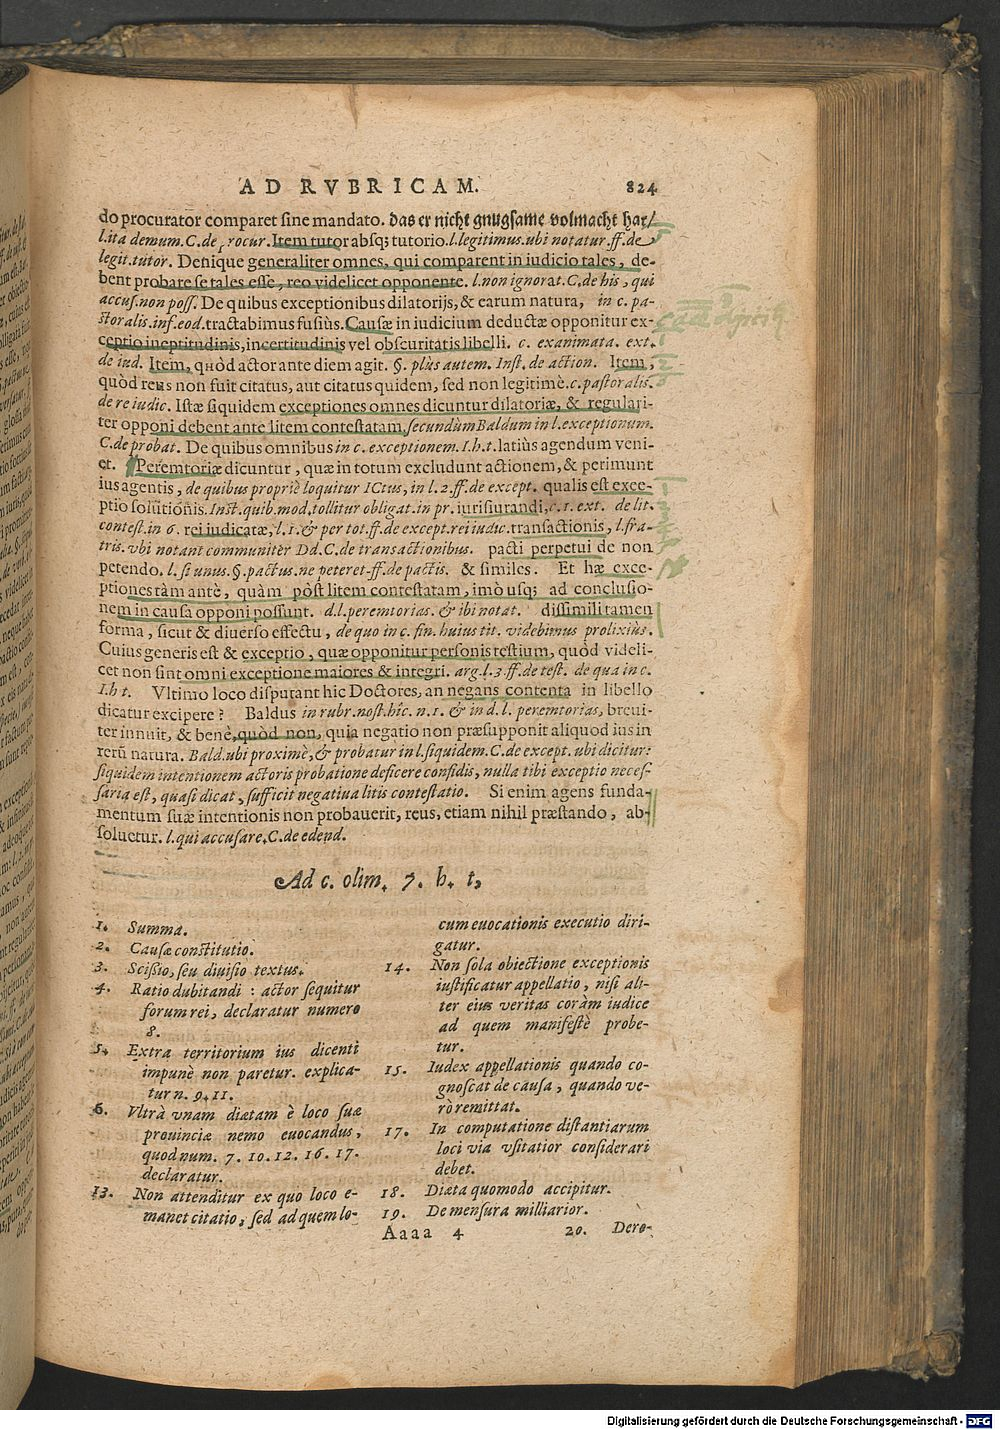 AD RVBRICAM. 824
do procurator comparet sine mandato. das er nicht gnugsame volmacht hat/
l. ita demum. C. de procur. Item tutor absq; tutorio. l. legitimus. ubi notatur. ff. de
legit. tutor. Denique generaliter omnes, qui comparent in iudicio tales, de-
bent probare se tales esse, reo videlicet opponente. l. non ignorat. C. de his, qui
accus. non poss. De quibus exceptionibus dilatorijs, & earum natura, in c. pa-
storalis. inf. eod. tractabimus fusiùs. Causæ in iudicium deductæ opponitur ex-
ceptio ineptitudinis, incertitudinis vel obscuritatis libelli. c. examinata. ext.
de iud. Item, quòd actor ante diem agit. §. plùs autem. Inst. de action. Item,
quòd reus non fuit citatus, aut citatus quidem, sed non legitimè. c. pastoralis.
de re iudic. Istæ siquidem exceptiones omnes dicuntur dilatoriæ, & regulari-
ter opponi debent ante litem contestatam, secundùm Baldum in l. exceptionum.
C. de probat. De quibus omnibus in c. exceptionem. I. h. t. latiùs agendum veni-
et. Peremtoriæ dicuntur, quæ in totum excludunt actionem, & perimunt
ius agentis, de quibus propriè loquitur ICtus, in l. 2. ff. de except. qualis est exce-
ptio solutionis. Inst. quib. mod. tollitur obligat. in pr. iurisiurandi, c. 1. ext. de lit.
contest. in 6. rei iudicatæ, l. 1. & per tot. ff. de except. rei iudic. transactionis, l. fra-
tris. vbi notant communitèr Dd. C. de transactionibus. pacti perpetui de non
petendo. l. si unus. §. pactus. ne peteret. ff. de pactis. & similes. Et hæ exce-
ptiones tàm antè, quàm pòst litem contestatam, imò usq; ad conclusio-
nem in causa opponi possunt. d. l. peremtorias. & ibi notat. dissimili tamen
forma, sicut & diuerso effectu, de quo in c. fin. huius tit. videbimus prolixiùs.
Cuius generis est & exceptio, quæ opponitur personis testium, quòd videli-
cet non sint omni exceptione maiores & integri. arg. l. 3. ff. de test. de qua in c.
I. h t. Vltimo loco disputant hic Doctores, an negans contenta in libello
dicatur excipere? Baldus in rubr. nost. hîc. n. 1. & in d. l. peremtorias, breui-
ter innuit, & benè, quòd non, quia negatio non præsupponit aliquod ius in
rerũ natura. Bald. ubi proximè, & probatur in l. siquidem. C. de except. ubi dicitur:
siquidem intentionem actoris probatione deficere confidis, nulla tibi exceptio neces-
saria est, quasi dicat, sufficit negatiua litis contestatio. Si enim agens funda-
mentum suæ intentionis non probauerit, reus, etiam nihil præstando, ab-
soluetur. l. qui accusare. C. de edend.
Ad c. olim. 7. h. t.
1. Summa.
2. Causæ constitutio.
3. Scissio, seu diuisio textus.
4. Ratio dubitandi : actor sequitur
forum rei, declaratur numero
8.
5. Extra territorium ius dicenti
impunè non paretur. explica-
tur n. 9. 11.
6. Vltrà vnam diætam è loco suæ
prouinciæ nemo euocandus,
quod num. 7. 10. 12. 16. 17.
declaratur.
13. Non attenditur ex quo loco e-
manet citatio, sed ad quem lo-
cum euocationis executio diri-
gatur.
14. Non sola obiectione exceptionis
iustificatur appellatio, nisi ali-
ter eius veritas coràm iudice
ad quem manifestè probe-
tur.
15. Iudex appellationis quando co-
gnoscat de causa, quando ve-
rò remittat.
17. In computatione distantiarum
loci via vsitatior considerari
debet.
18. Diæta quomodo accipitur.
19. De mensura milliarior.
Aaaa 4 20. Dero-
Digitalisierung gefördert durch die Deutsche Forschungsgemeinschaft - DFG